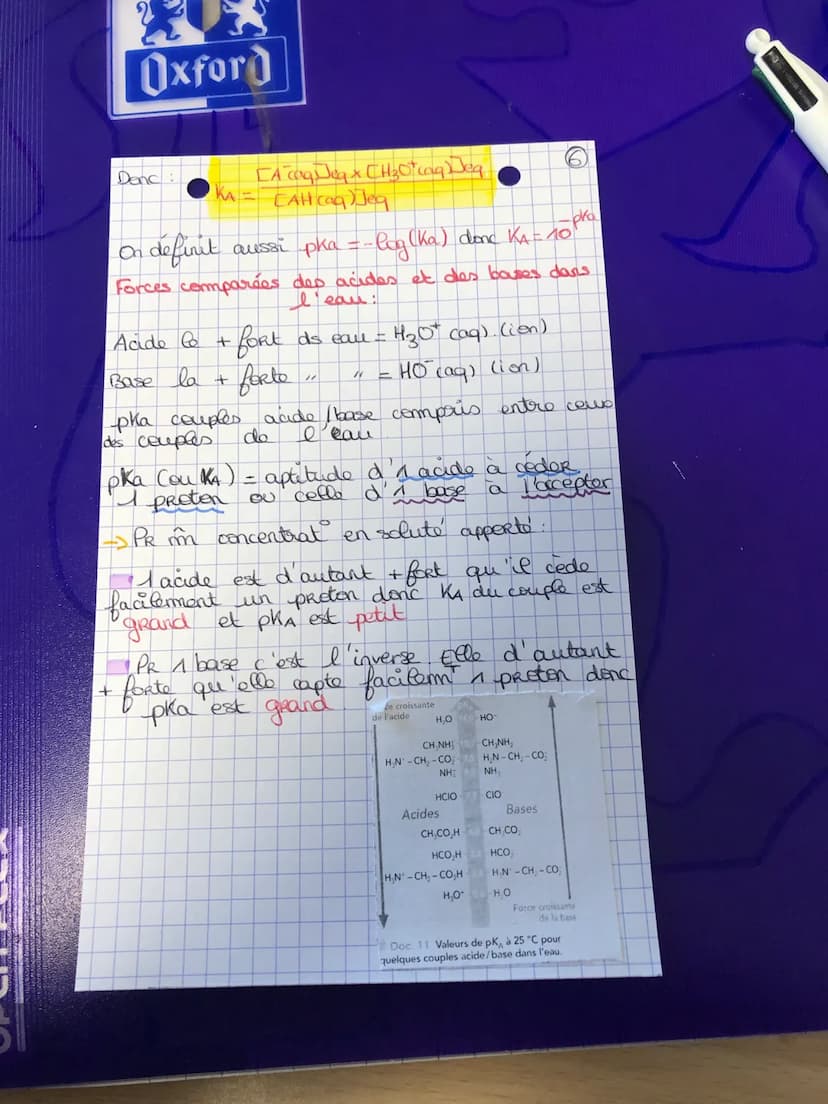 Oxford
6
Donc :
KA = [A⁻(aq)]eq x [H3O⁺(aq)]eq
[AH(aq)]eq
On définit aussi pKa = -log(Ka) donc KA = 10^-pKa
Forces comparées des acides et des bases dans
l'eau :
Acide le + fort ds eau = H3O⁺ (aq) (ion)
Base la + forte " " = HO⁻(aq) (ion)
pKa couples acide/base compris entre ceux
des couples de l'eau
pKa (ou KA) = aptitude d'1 acide à céder
1 proton ou celle d'1 base à l'accepter
→ Pr m̂ concentrat° en soluté apporté :
1 acide est d'autant + fort qu'il cède
facilement un proton donc KA du couple est
grand et pKA est petit
Pr 1 base c'est l'inverse. Elle d'autant
+ forte qu'elle capte facilemnt 1 proton donc
pKa est grand
croissante
de l'acide
H₂O HO⁻
CH₃NH₃⁺ CH₃NH₂
H₂N-CH₂-CO₂⁻
NH₄⁺ NH₃
HClO ClO
Acides Bases
CH₃CO₂H CH₃CO₂⁻
HCO₂H HCO₂⁻
H₃N⁺-CH₂-CO₂H H₃N⁺-CH₂-CO₂⁻
H₃O⁺ H₂O
Force croissante
de la base
Doc. 11 Valeurs de pKA à 25 °C pour
quelques couples acide/base dans l'eau.